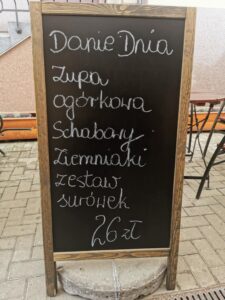 Danie Dnia
Zupa
ogórkowa
Schabowy
Ziemniaki
zestaw
surówek
26 zł